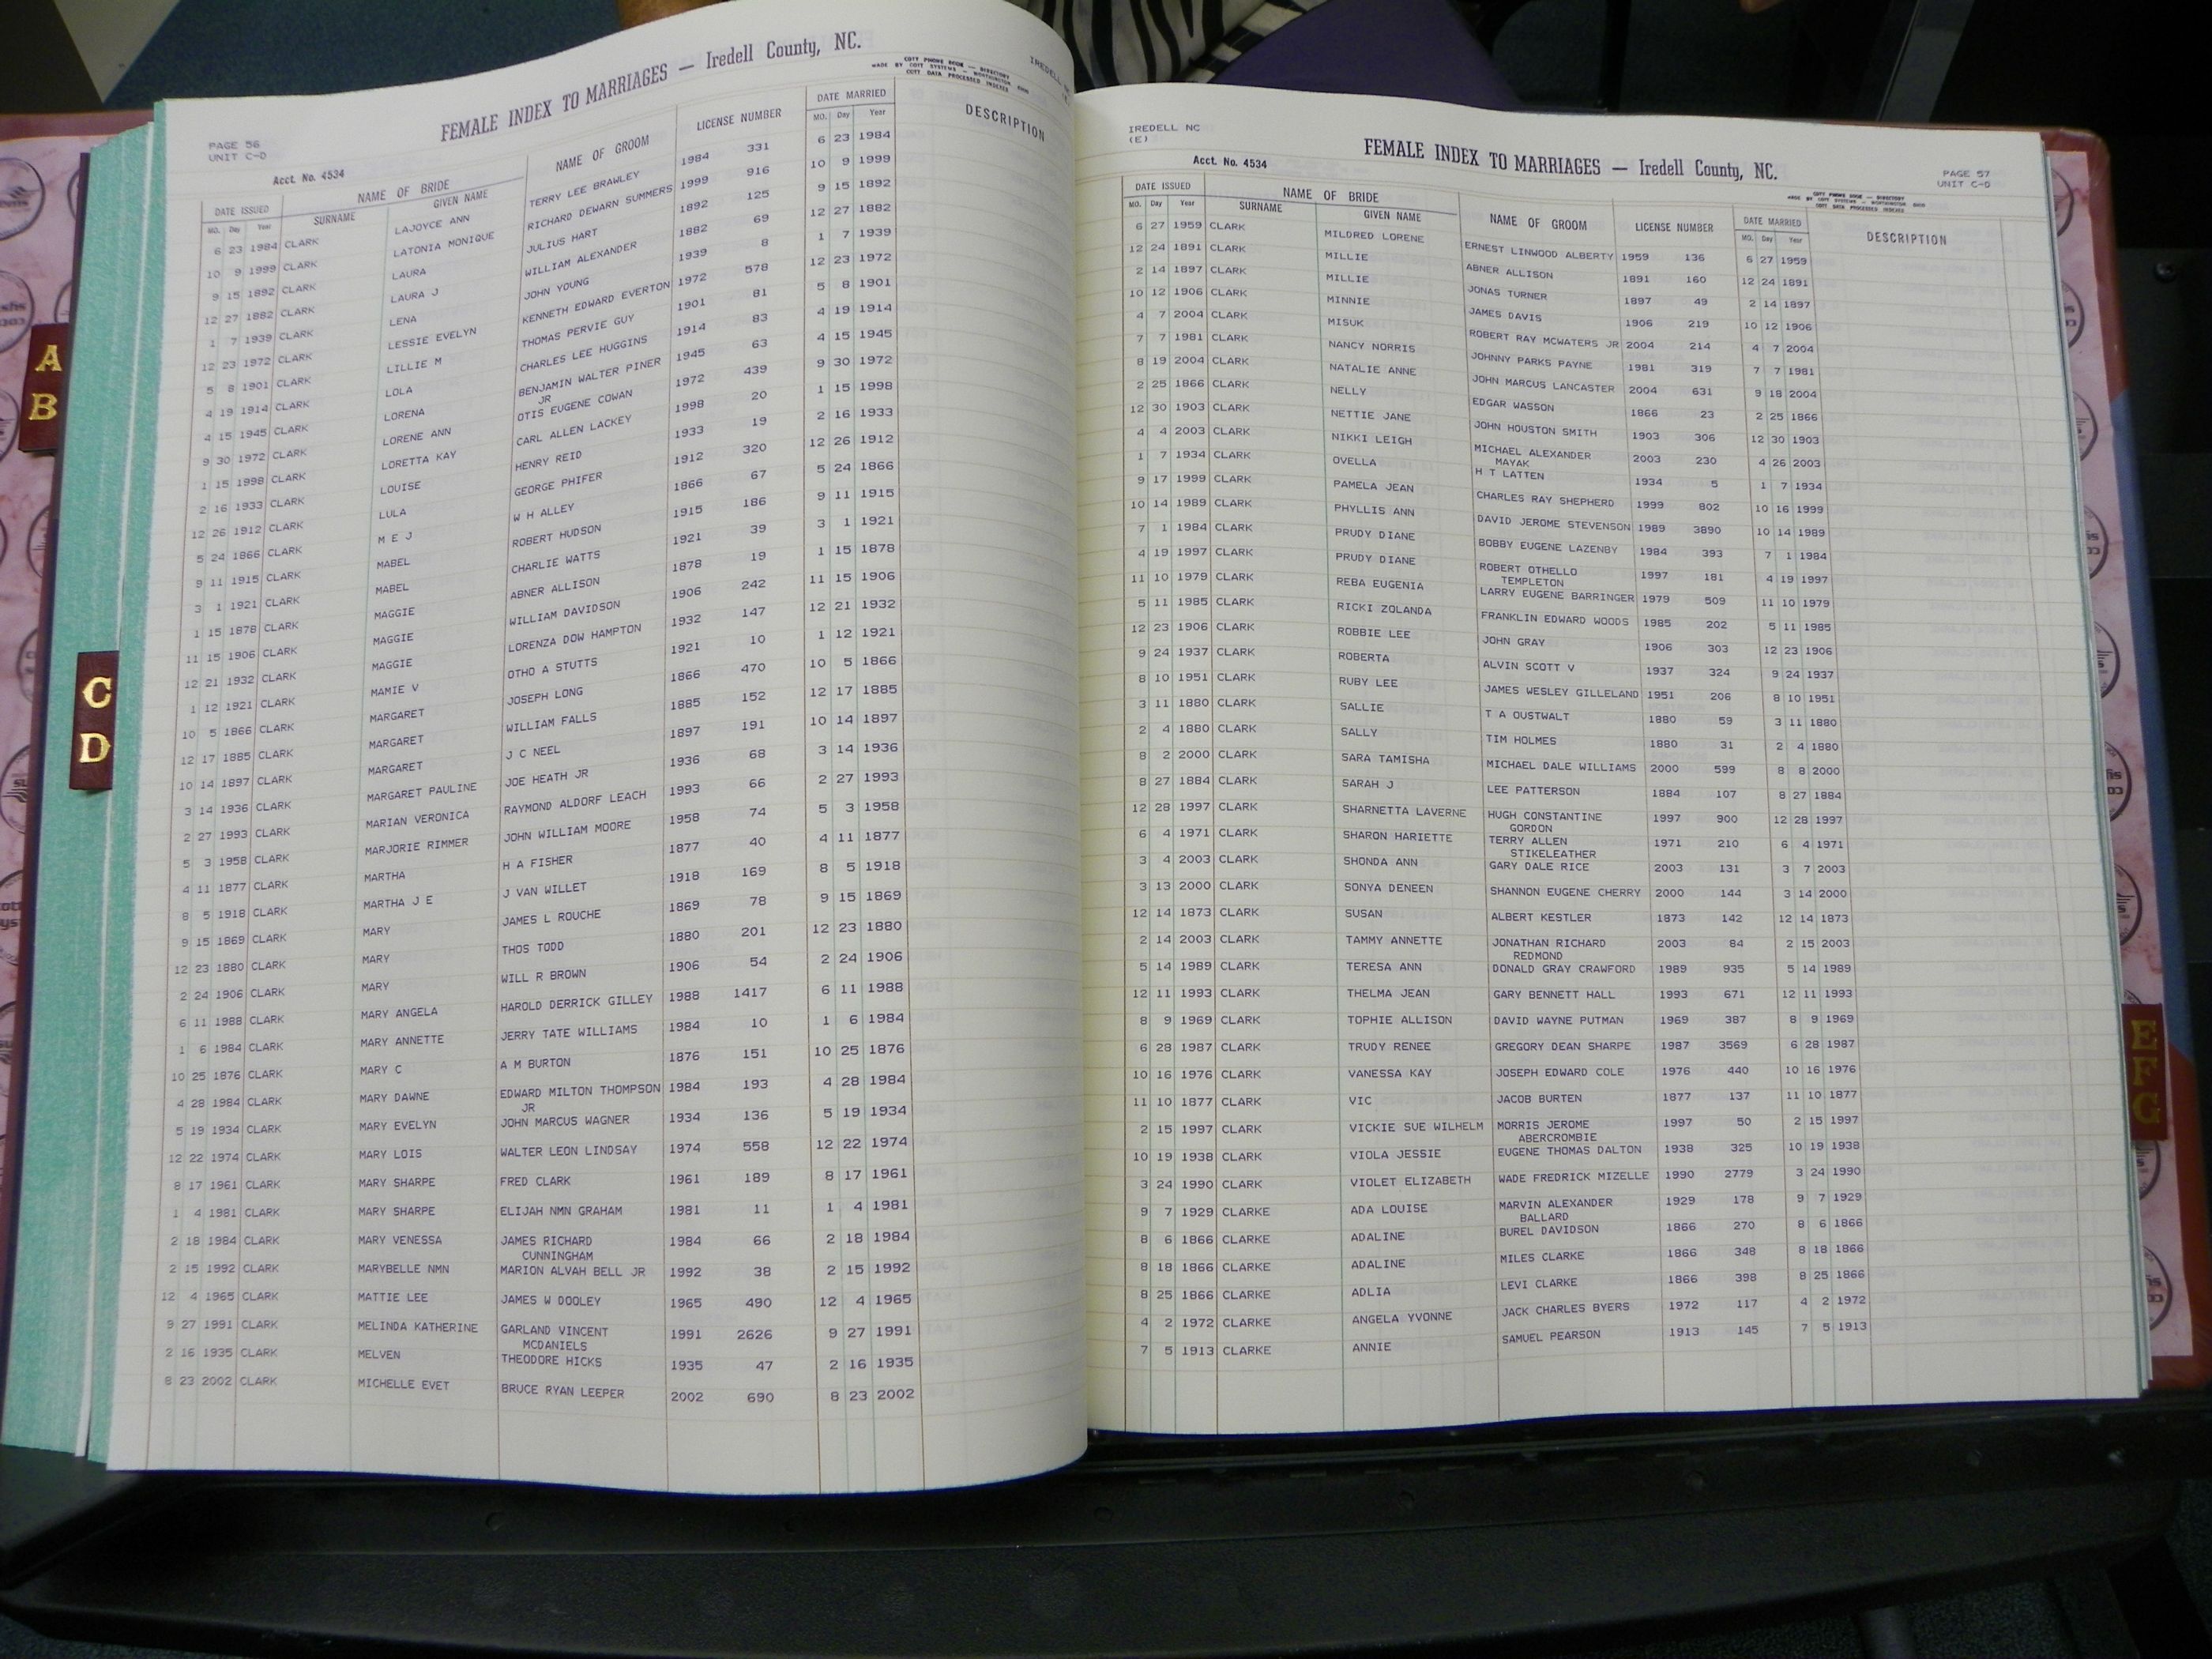 PAGE 56
UNIT C-D
FEMALE INDEX TO MARRIAGES — Iredell County, NC.
COTT PHONE BOOK — DIRECTORY
MADE BY COTT SYSTEMS — WORTHINGTON
COTT DATA PROCESSED INDEXES
Acct. No. 4534
DATE ISSUED NAME OF BRIDE NAME OF GROOM LICENSE NUMBER DATE MARRIED DESCRIPTION
MO. Day Year SURNAME GIVEN NAME MO. Day Year
6 23 1984 CLARK LAJOYCE ANN TERRY LEE BRAWLEY 1984 331 6 23 1984
10 9 1999 CLARK LATONIA MONIQUE RICHARD DEWARN SUMMERS 1999 916 10 9 1999
9 15 1892 CLARK LAURA JULIUS HART 1892 125 9 15 1892
12 27 1882 CLARK LAURA J WILLIAM ALEXANDER 1882 69 12 27 1882
1 7 1939 CLARK LENA JOHN YOUNG 1939 8 1 7 1939
12 23 1972 CLARK LESSIE EVELYN KENNETH EDWARD EVERTON 1972 578 12 23 1972
5 8 1901 CLARK LILLIE M THOMAS PERVIE GUY 1901 81 5 8 1901
4 19 1914 CLARK LOLA CHARLES LEE HUGGINS 1914 83 4 19 1914
4 15 1945 CLARK LORENA BENJAMIN WALTER PINER 1945 63 4 15 1945
JR
9 30 1972 CLARK LORENE ANN OTIS EUGENE COWAN 1972 439 9 30 1972
1 15 1998 CLARK LORETTA KAY CARL ALLEN LACKEY 1998 20 1 15 1998
2 16 1933 CLARK LOUISE HENRY REID 1933 19 2 16 1933
12 26 1912 CLARK LULA GEORGE PHIFER 1912 320 12 26 1912
5 24 1866 CLARK M E J W H ALLEY 1866 67 5 24 1866
9 11 1915 CLARK MABEL ROBERT HUDSON 1915 186 9 11 1915
3 1 1921 CLARK MABEL CHARLIE WATTS 1921 39 3 1 1921
1 15 1878 CLARK MAGGIE ABNER ALLISON 1878 19 1 15 1878
11 15 1906 CLARK MAGGIE WILLIAM DAVIDSON 1906 242 11 15 1906
12 21 1932 CLARK MAGGIE LORENZA DOW HAMPTON 1932 147 12 21 1932
1 12 1921 CLARK MAMIE V OTHO A STUTTS 1921 10 1 12 1921
10 5 1866 CLARK MARGARET JOSEPH LONG 1866 470 10 5 1866
12 17 1885 CLARK MARGARET WILLIAM FALLS 1885 152 12 17 1885
10 14 1897 CLARK MARGARET J C NEEL 1897 191 10 14 1897
3 14 1936 CLARK MARGARET PAULINE JOE HEATH JR 1936 68 3 14 1936
2 27 1993 CLARK MARIAN VERONICA RAYMOND ALDORF LEACH 1993 66 2 27 1993
5 3 1958 CLARK MARJORIE RIMMER JOHN WILLIAM MOORE 1958 74 5 3 1958
4 11 1877 CLARK MARTHA H A FISHER 1877 40 4 11 1877
8 5 1918 CLARK MARTHA J E J VAN WILLET 1918 169 8 5 1918
9 15 1869 CLARK MARY JAMES L ROUCHE 1869 78 9 15 1869
12 23 1880 CLARK MARY THOS TODD 1880 201 12 23 1880
2 24 1906 CLARK MARY WILL R BROWN 1906 54 2 24 1906
6 11 1988 CLARK MARY ANGELA HAROLD DERRICK GILLEY 1988 1417 6 11 1988
1 6 1984 CLARK MARY ANNETTE JERRY TATE WILLIAMS 1984 10 1 6 1984
10 25 1876 CLARK MARY C A M BURTON 1876 151 10 25 1876
4 28 1984 CLARK MARY DAWNE EDWARD MILTON THOMPSON 1984 193 4 28 1984
JR
5 19 1934 CLARK MARY EVELYN JOHN MARCUS WAGNER 1934 136 5 19 1934
12 22 1974 CLARK MARY LOIS WALTER LEON LINDSAY 1974 558 12 22 1974
8 17 1961 CLARK MARY SHARPE FRED CLARK 1961 189 8 17 1961
1 4 1981 CLARK MARY SHARPE ELIJAH NMN GRAHAM 1981 11 1 4 1981
2 18 1984 CLARK MARY VENESSA JAMES RICHARD 1984 66 2 18 1984
CUNNINGHAM
2 15 1992 CLARK MARYBELLE NMN MARION ALVAH BELL JR 1992 38 2 15 1992
12 4 1965 CLARK MATTIE LEE JAMES W DOOLEY 1965 490 12 4 1965
9 27 1991 CLARK MELINDA KATHERINE GARLAND VINCENT 1991 2626 9 27 1991
MCDANIELS
2 16 1935 CLARK MELVEN THEODORE HICKS 1935 47 2 16 1935
8 23 2002 CLARK MICHELLE EVET BRUCE RYAN LEEPER 2002 690 8 23 2002
IREDELL NC
(E)
FEMALE INDEX TO MARRIAGES — Iredell County, NC.
PAGE 57
UNIT C-D
Acct. No. 4534
COTT PHONE BOOK — DIRECTORY
MADE BY COTT SYSTEMS — WORTHINGTON
COTT DATA PROCESSED INDEXES
DATE ISSUED NAME OF BRIDE NAME OF GROOM LICENSE NUMBER DATE MARRIED DESCRIPTION
MO. Day Year SURNAME GIVEN NAME MO. Day Year
6 27 1959 CLARK MILDRED LORENE ERNEST LINWOOD ALBERTY 1959 136 6 27 1959
12 24 1891 CLARK MILLIE ABNER ALLISON 1891 160 12 24 1891
2 14 1897 CLARK MILLIE JONAS TURNER 1897 49 2 14 1897
10 12 1906 CLARK MINNIE JAMES DAVIS 1906 219 10 12 1906
4 7 2004 CLARK MISUK ROBERT RAY MCWATERS JR 2004 214 4 7 2004
7 7 1981 CLARK NANCY NORRIS JOHNNY PARKS PAYNE 1981 319 7 7 1981
8 19 2004 CLARK NATALIE ANNE JOHN MARCUS LANCASTER 2004 631 9 18 2004
2 25 1866 CLARK NELLY EDGAR WASSON 1866 23 2 25 1866
12 30 1903 CLARK NETTIE JANE JOHN HOUSTON SMITH 1903 306 12 30 1903
4 4 2003 CLARK NIKKI LEIGH MICHAEL ALEXANDER 2003 230 4 26 2003
MAYAK
1 7 1934 CLARK OVELLA H T LATTEN 1934 5 1 7 1934
9 17 1999 CLARK PAMELA JEAN CHARLES RAY SHEPHERD 1999 802 10 16 1999
10 14 1989 CLARK PHYLLIS ANN DAVID JEROME STEVENSON 1989 3890 10 14 1989
7 1 1984 CLARK PRUDY DIANE BOBBY EUGENE LAZENBY 1984 393 7 1 1984
4 19 1997 CLARK PRUDY DIANE ROBERT OTHELLO 1997 181 4 19 1997
TEMPLETON
11 10 1979 CLARK REBA EUGENIA LARRY EUGENE BARRINGER 1979 509 11 10 1979
5 11 1985 CLARK RICKI ZOLANDA FRANKLIN EDWARD WOODS 1985 202 5 11 1985
12 23 1906 CLARK ROBBIE LEE JOHN GRAY 1906 303 12 23 1906
9 24 1937 CLARK ROBERTA ALVIN SCOTT V 1937 324 9 24 1937
8 10 1951 CLARK RUBY LEE JAMES WESLEY GILLELAND 1951 206 8 10 1951
3 11 1880 CLARK SALLIE T A OUSTWALT 1880 59 3 11 1880
2 4 1880 CLARK SALLY TIM HOLMES 1880 31 2 4 1880
8 2 2000 CLARK SARA TAMISHA MICHAEL DALE WILLIAMS 2000 599 8 8 2000
8 27 1884 CLARK SARAH J LEE PATTERSON 1884 107 8 27 1884
12 28 1997 CLARK SHARNETTA LAVERNE HUGH CONSTANTINE 1997 900 12 28 1997
GORDON
6 4 1971 CLARK SHARON HARIETTE TERRY ALLEN 1971 210 6 4 1971
STIKELEATHER
3 4 2003 CLARK SHONDA ANN GARY DALE RICE 2003 131 3 7 2003
3 13 2000 CLARK SONYA DENEEN SHANNON EUGENE CHERRY 2000 144 3 14 2000
12 14 1873 CLARK SUSAN ALBERT KESTLER 1873 142 12 14 1873
2 14 2003 CLARK TAMMY ANNETTE JONATHAN RICHARD 2003 84 2 15 2003
REDMOND
5 14 1989 CLARK TERESA ANN DONALD GRAY CRAWFORD 1989 935 5 14 1989
12 11 1993 CLARK THELMA JEAN GARY BENNETT HALL 1993 671 12 11 1993
8 9 1969 CLARK TOPHIE ALLISON DAVID WAYNE PUTMAN 1969 387 8 9 1969
6 28 1987 CLARK TRUDY RENEE GREGORY DEAN SHARPE 1987 3569 6 28 1987
10 16 1976 CLARK VANESSA KAY JOSEPH EDWARD COLE 1976 440 10 16 1976
11 10 1877 CLARK VIC JACOB BURTEN 1877 137 11 10 1877
2 15 1997 CLARK VICKIE SUE WILHELM MORRIS JEROME 1997 50 2 15 1997
ABERCROMBIE
10 19 1938 CLARK VIOLA JESSIE EUGENE THOMAS DALTON 1938 325 10 19 1938
3 24 1990 CLARK VIOLET ELIZABETH WADE FREDRICK MIZELLE 1990 2779 3 24 1990
9 7 1929 CLARKE ADA LOUISE MARVIN ALEXANDER 1929 178 9 7 1929
BALLARD
8 6 1866 CLARKE ADALINE BUREL DAVIDSON 1866 270 8 6 1866
8 18 1866 CLARKE ADALINE MILES CLARKE 1866 348 8 18 1866
8 25 1866 CLARKE ADLIA LEVI CLARKE 1866 398 8 25 1866
4 2 1972 CLARKE ANGELA YVONNE JACK CHARLES BYERS 1972 117 4 2 1972
7 5 1913 CLARKE ANNIE SAMUEL PEARSON 1913 145 7 5 1913
A
B
C
D
E
F
G